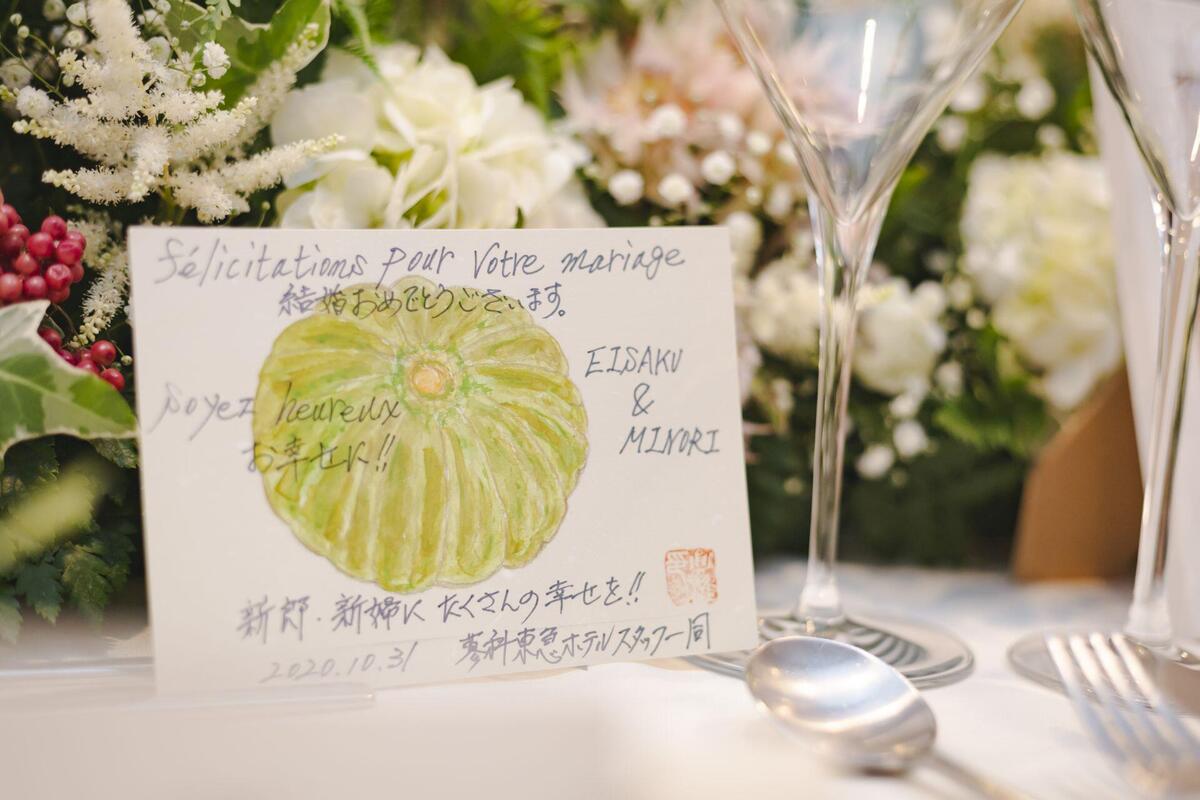 félicitations pour votre mariage
結婚おめでとうございます。
EISAKU
&
MINORI
Soyez heureux
お幸せに!!
新郎・新婦に たくさんの幸せを!!
2020.10.31 蓼科東急ホテルスタッフ一同